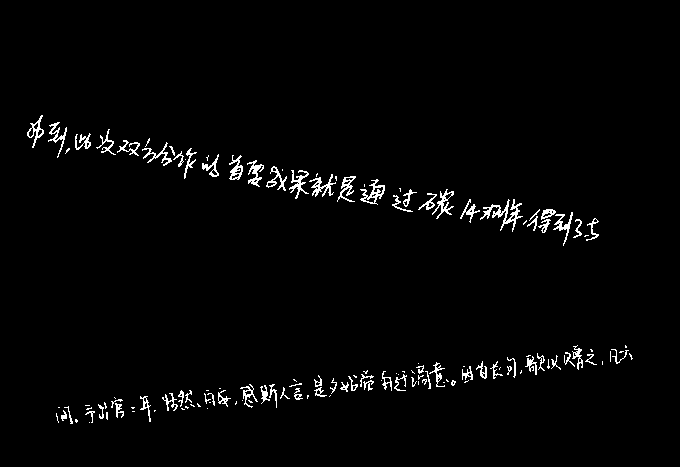 中到,此次双方合作的首要成果就是通过碳14测年,得到了七
间。予出官二年,恬然自安,感斯人言,是夕始觉有迁谪意。因为长句,歌以赠之,凡六